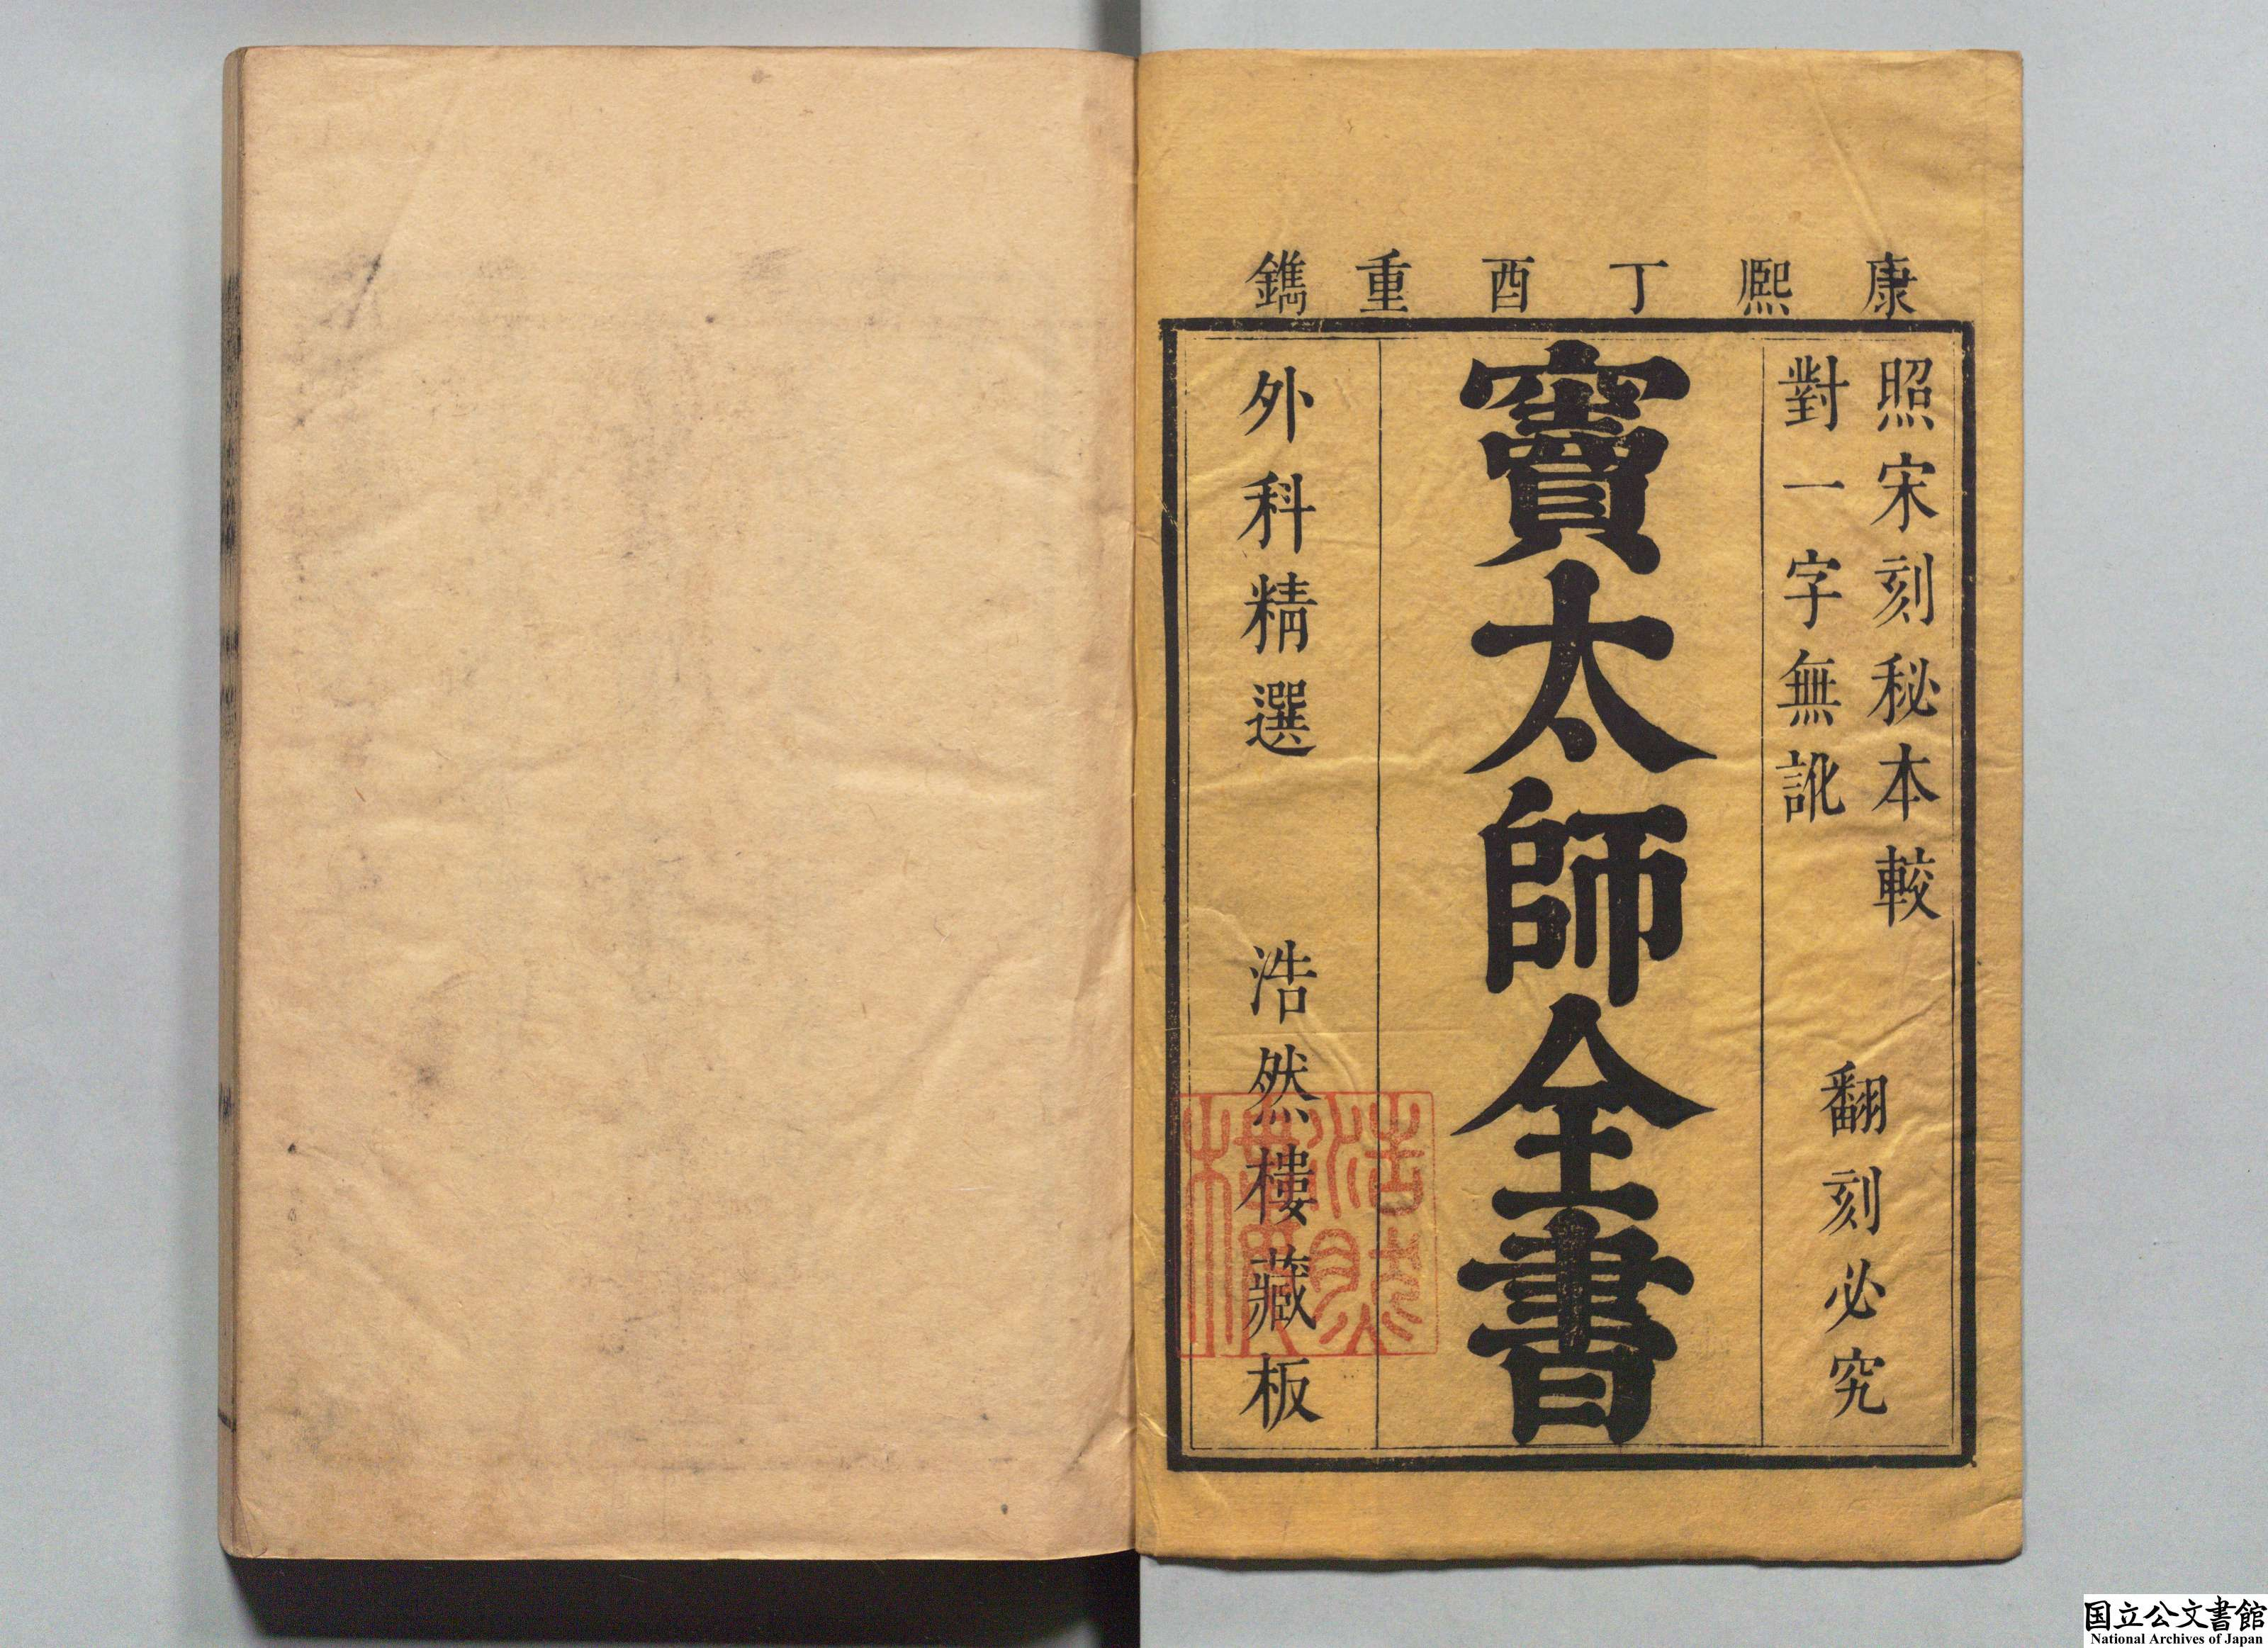 康熙丁酉重鐫
照宋刻秘本較
對一字無訛
翻刻必究
竇太師全書
外科精選
浩然樓藏板
浩然
樓藏
国立公文書館
National Archives of Japan